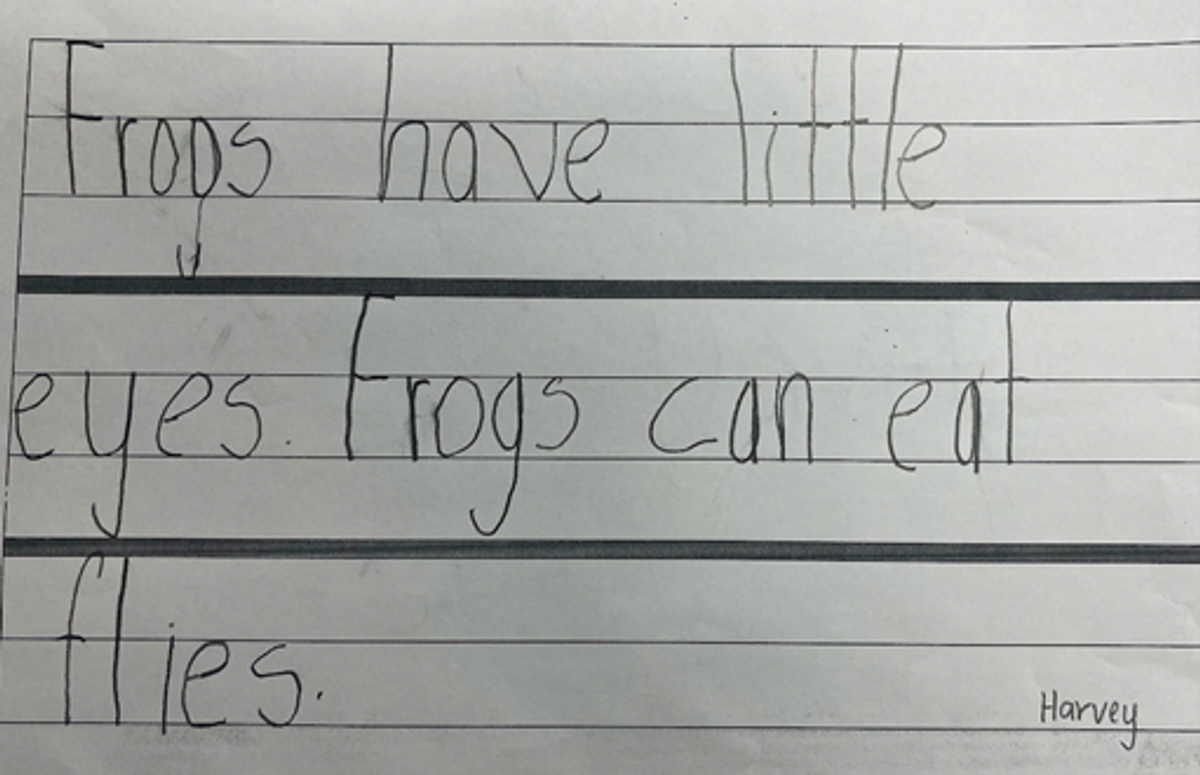 Frogs have little
eyes. Frogs can eat
flies.
Harvey